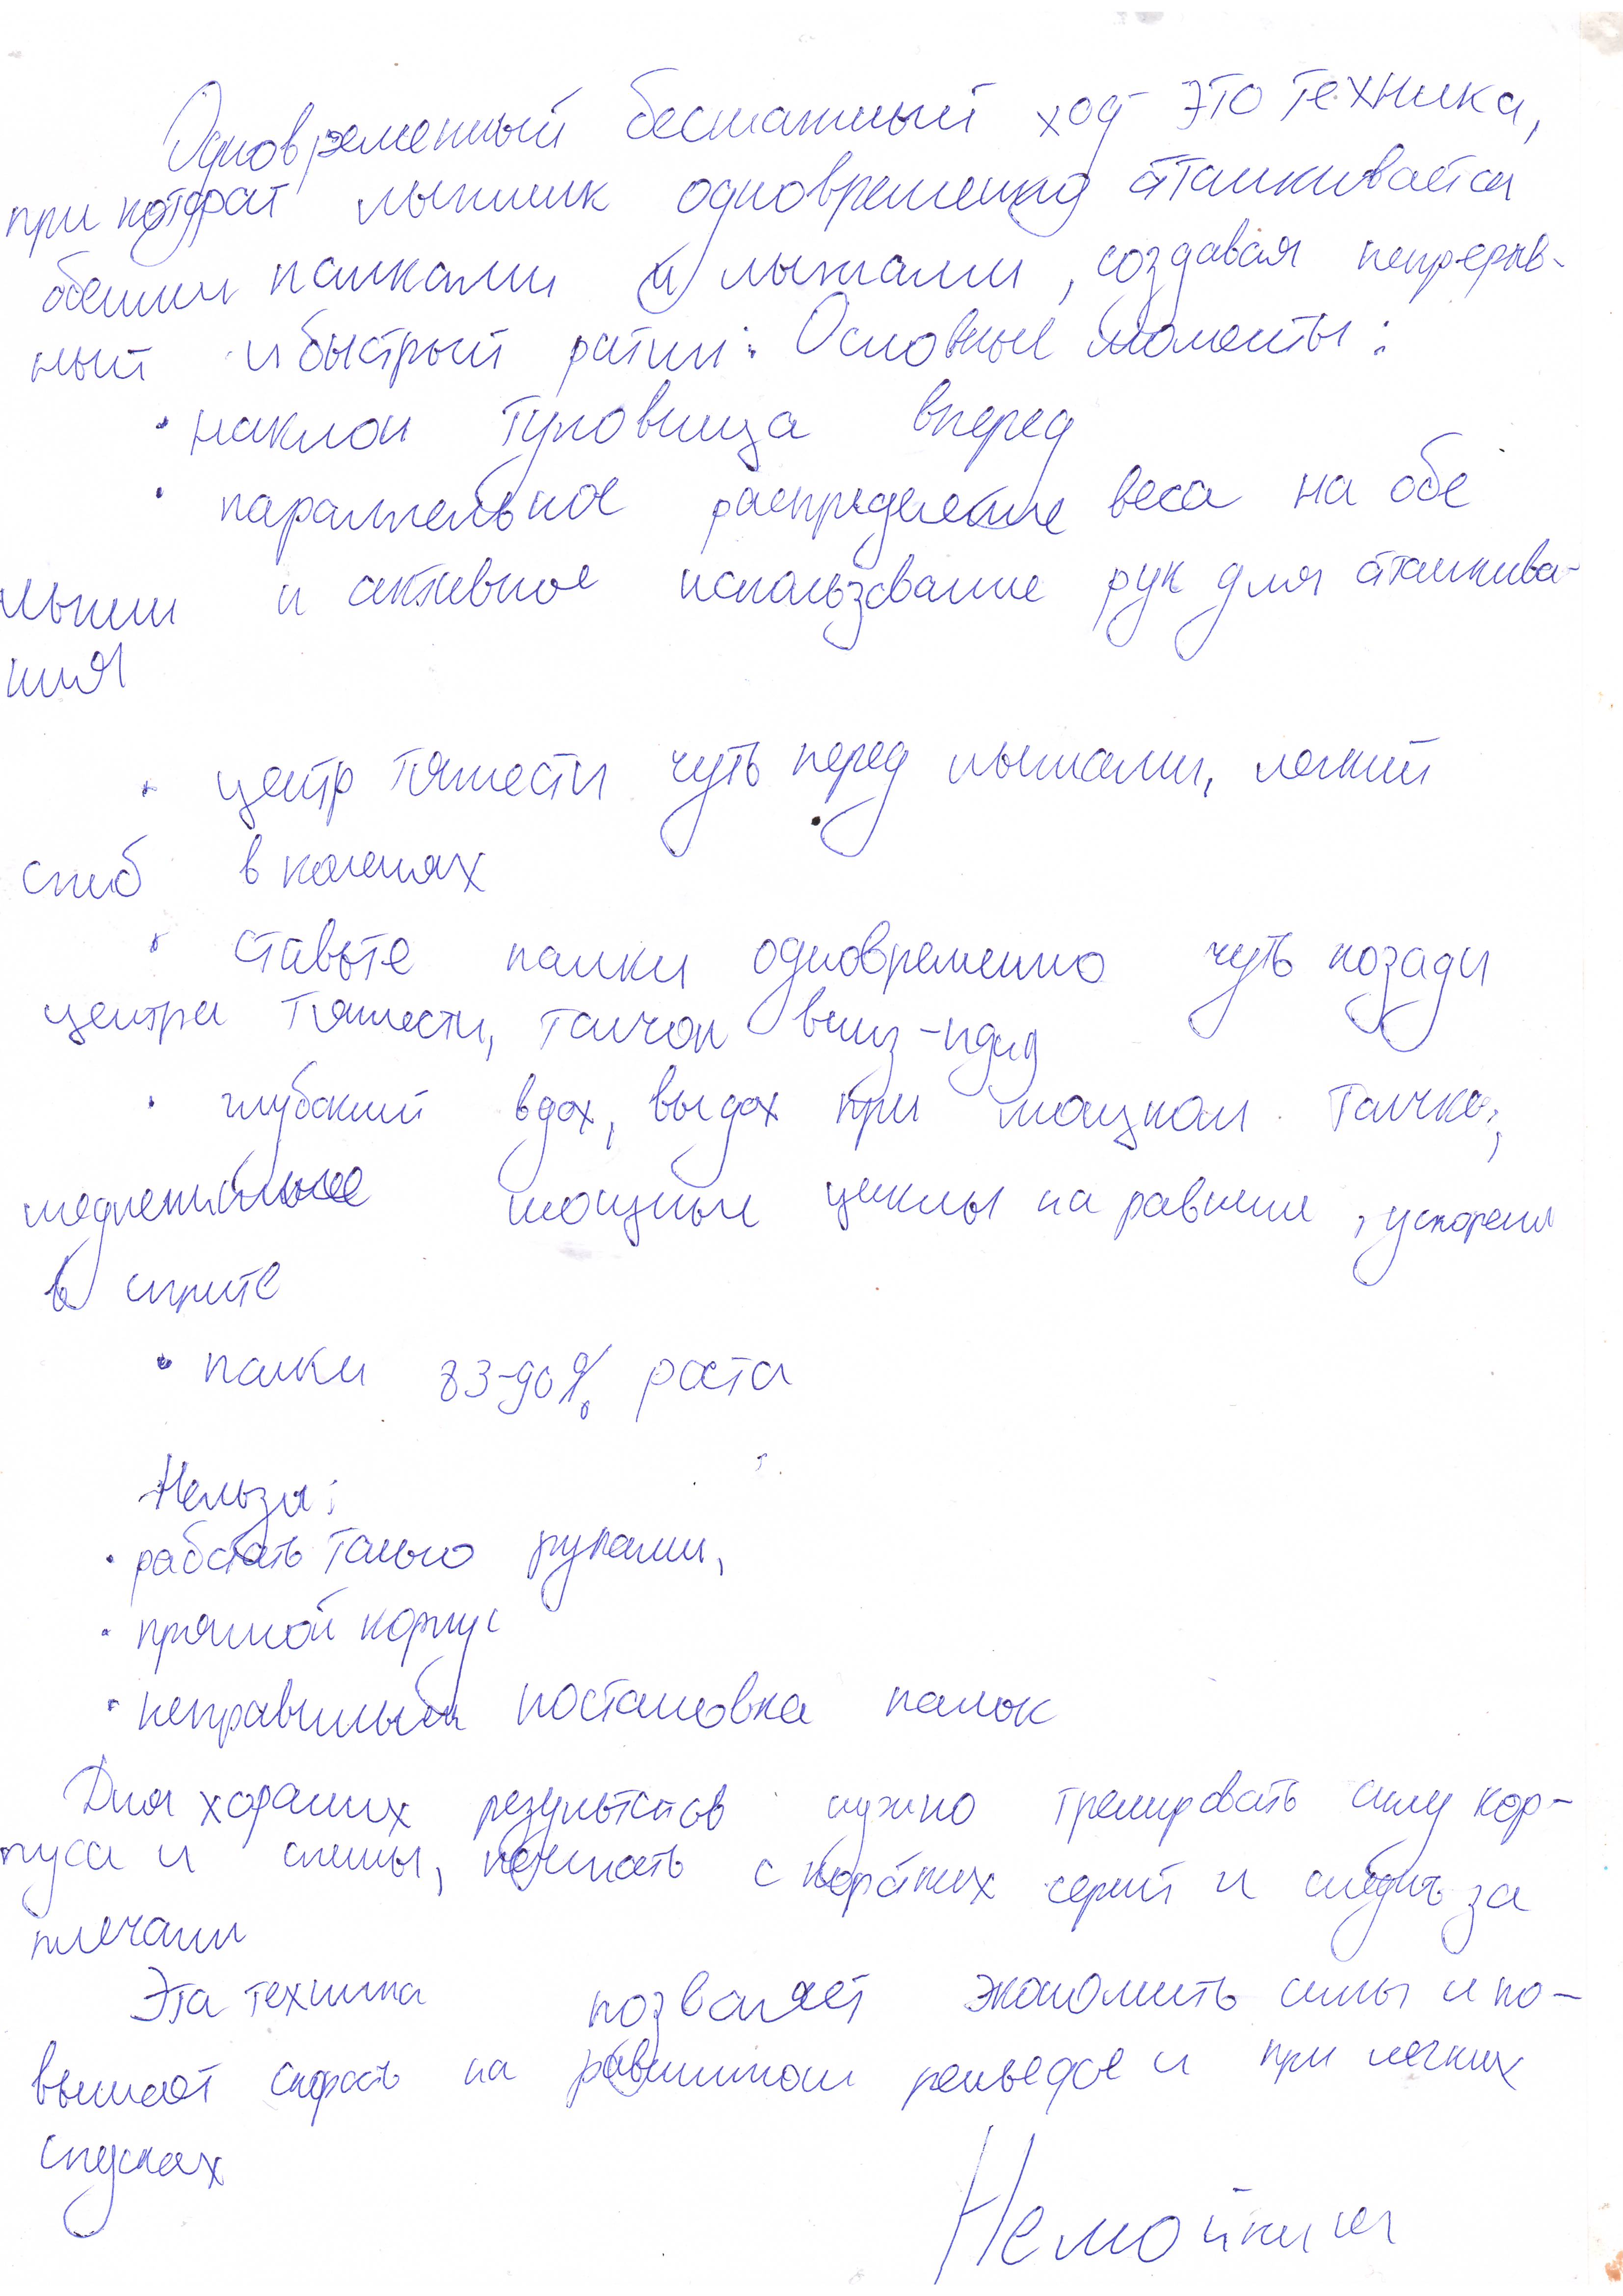 Одновременный бесшажный ход это техника,
при которой лыжник одновременно отталкивается
обеими палками и лыжами, создавая непрерыв-
ный и быстрый ритм. Основные моменты:
• наклон туловища вперед
• параллельное распределение веса на обе
лыжи и активное использование рук для отталкива-
ния
• центр тяжести чуть перед лыжами, легкий
сгиб в коленях
• ставьте палки одновременно чуть позади
центра тяжести, толчок вниз-
• глубокий вдох, выдох при мощном толчке,
мощные циклы на равнине, ускорения
в спринте
• палки 83-90% роста
Нельзя:
• работать только руками,
• прямой корпус
• неправильная постановка палок
Для хороших результатов нужно тренировать силу кор-
пуса и спины, начинать с коротких серий и следить за
плечами
Эта техника позволяет экономить силы и по-
вышает скорость на равнинном рельефе и при легких
спусках